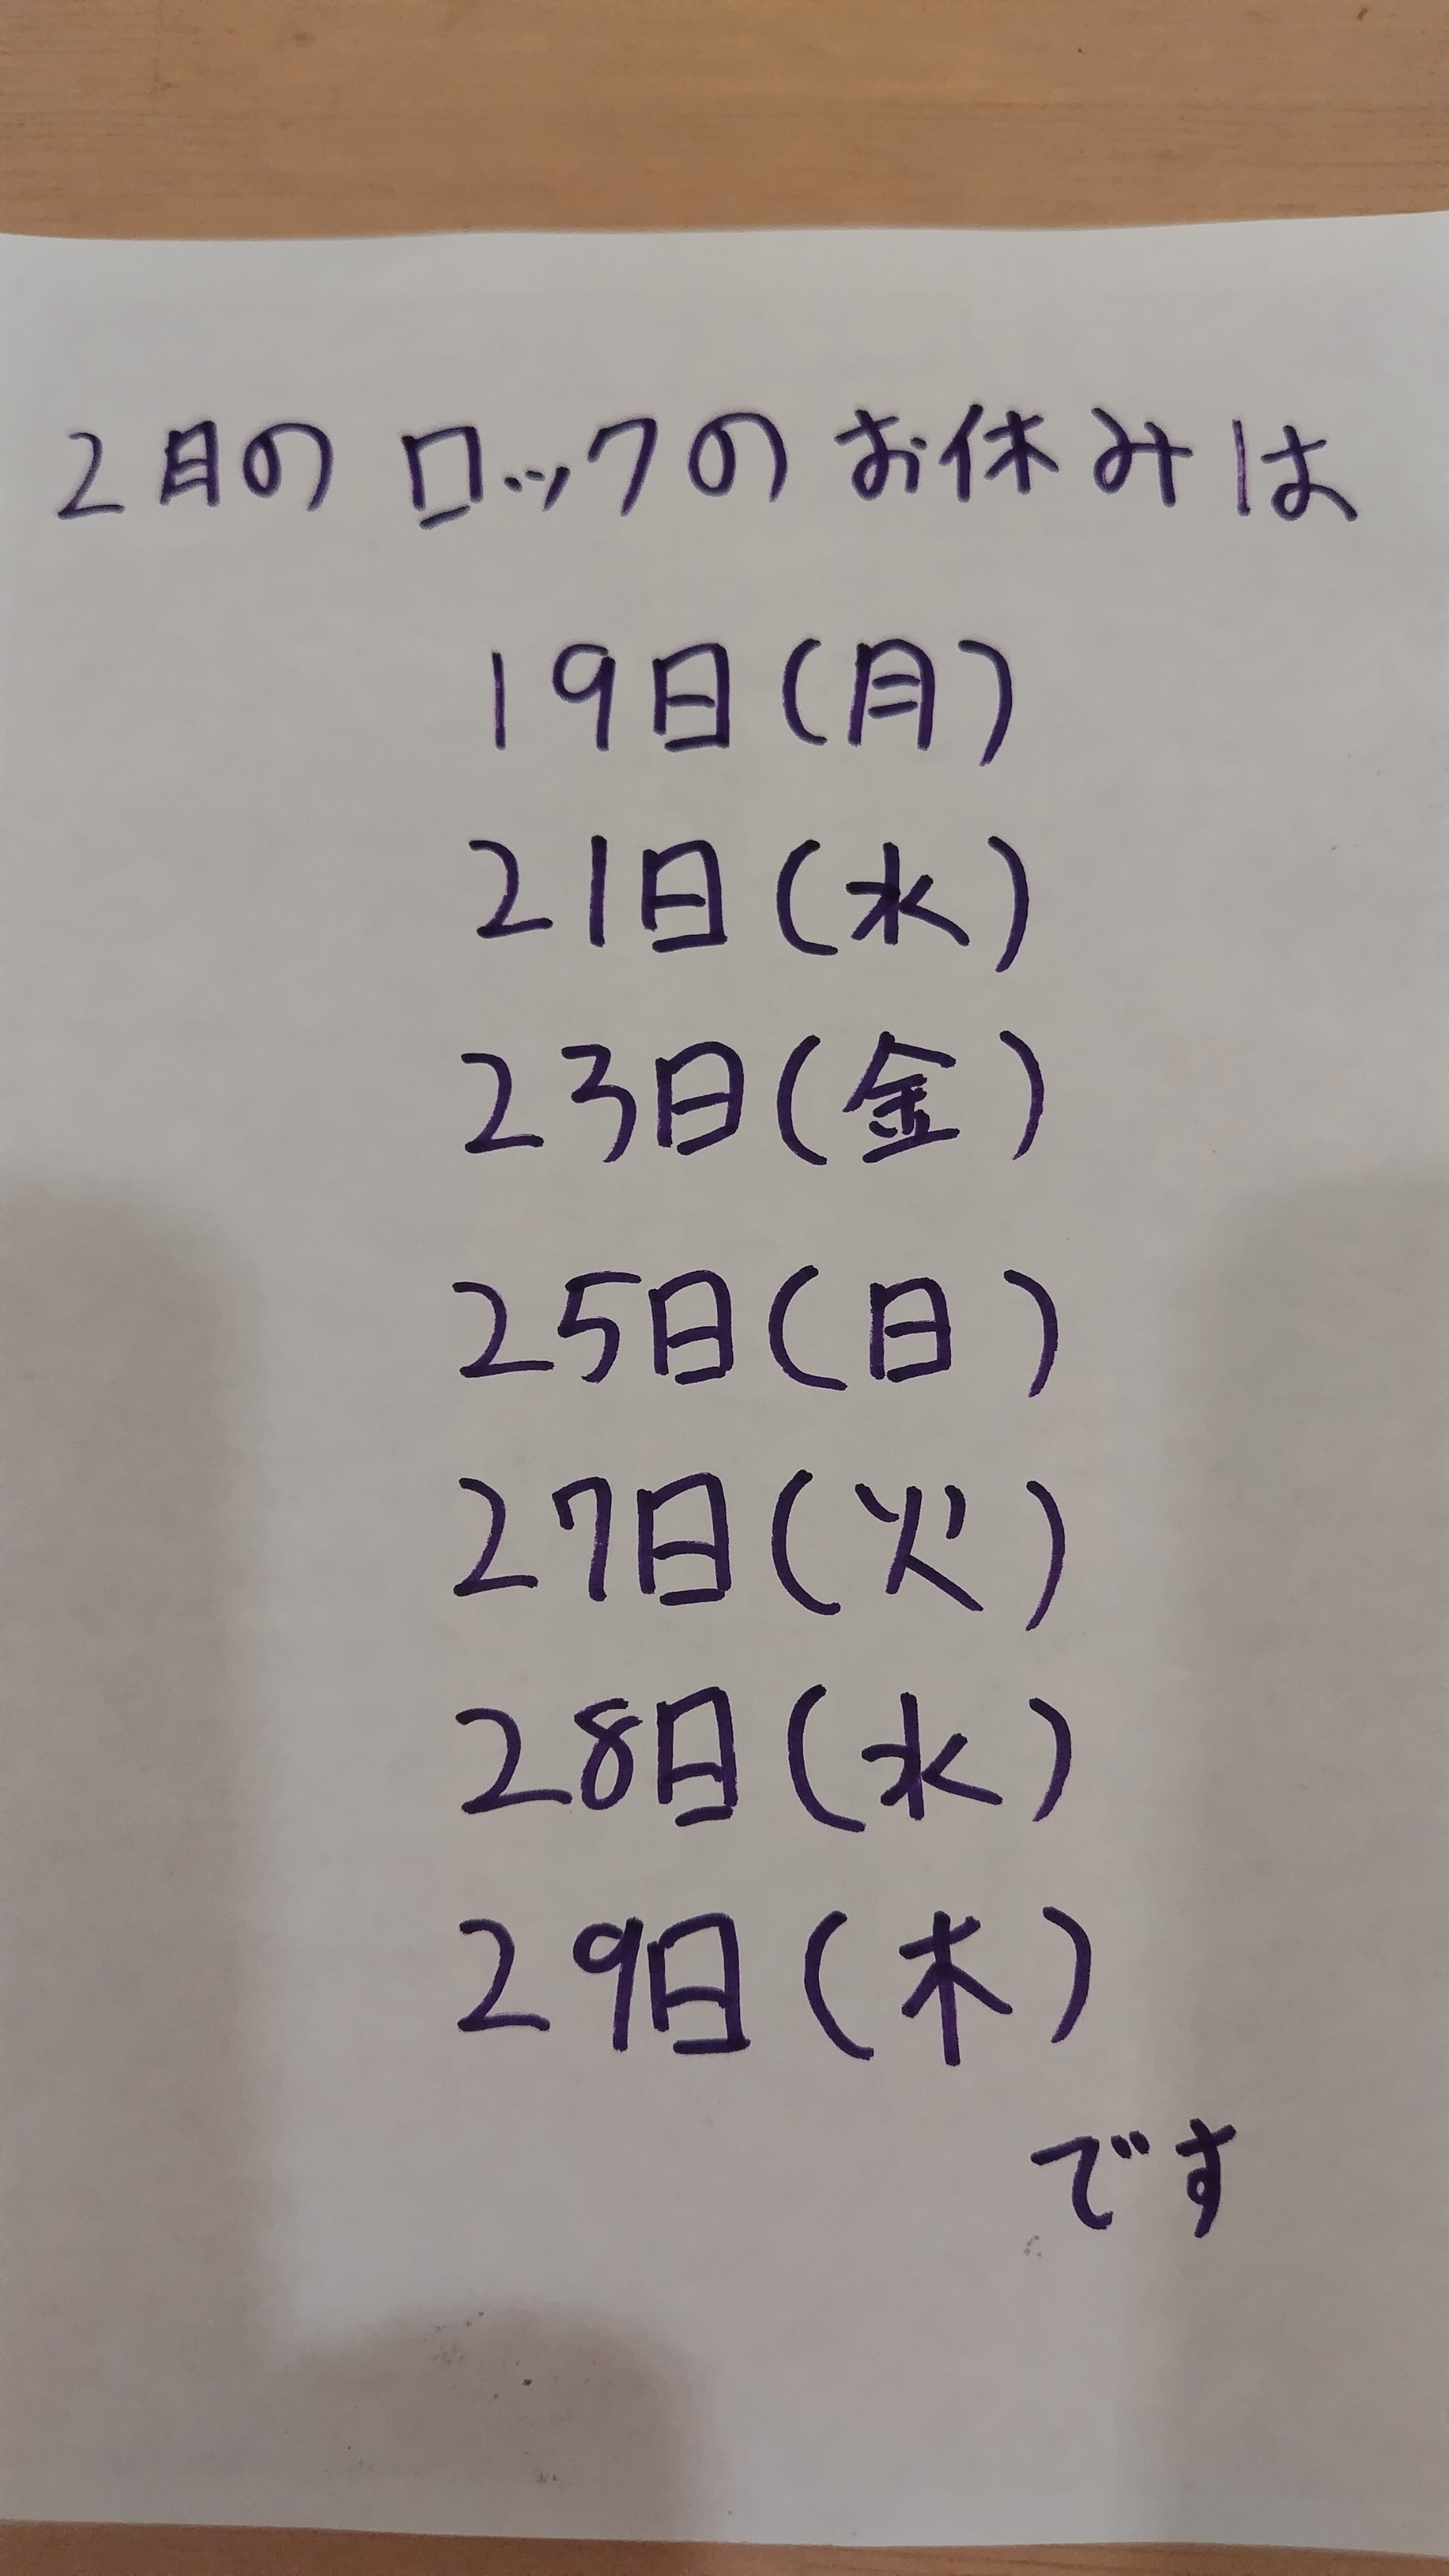 2月のロックのお休みは
19日(月)
21日(水)
23日(金)
25日(日)
27日(火)
28日(水)
29日(木)
です